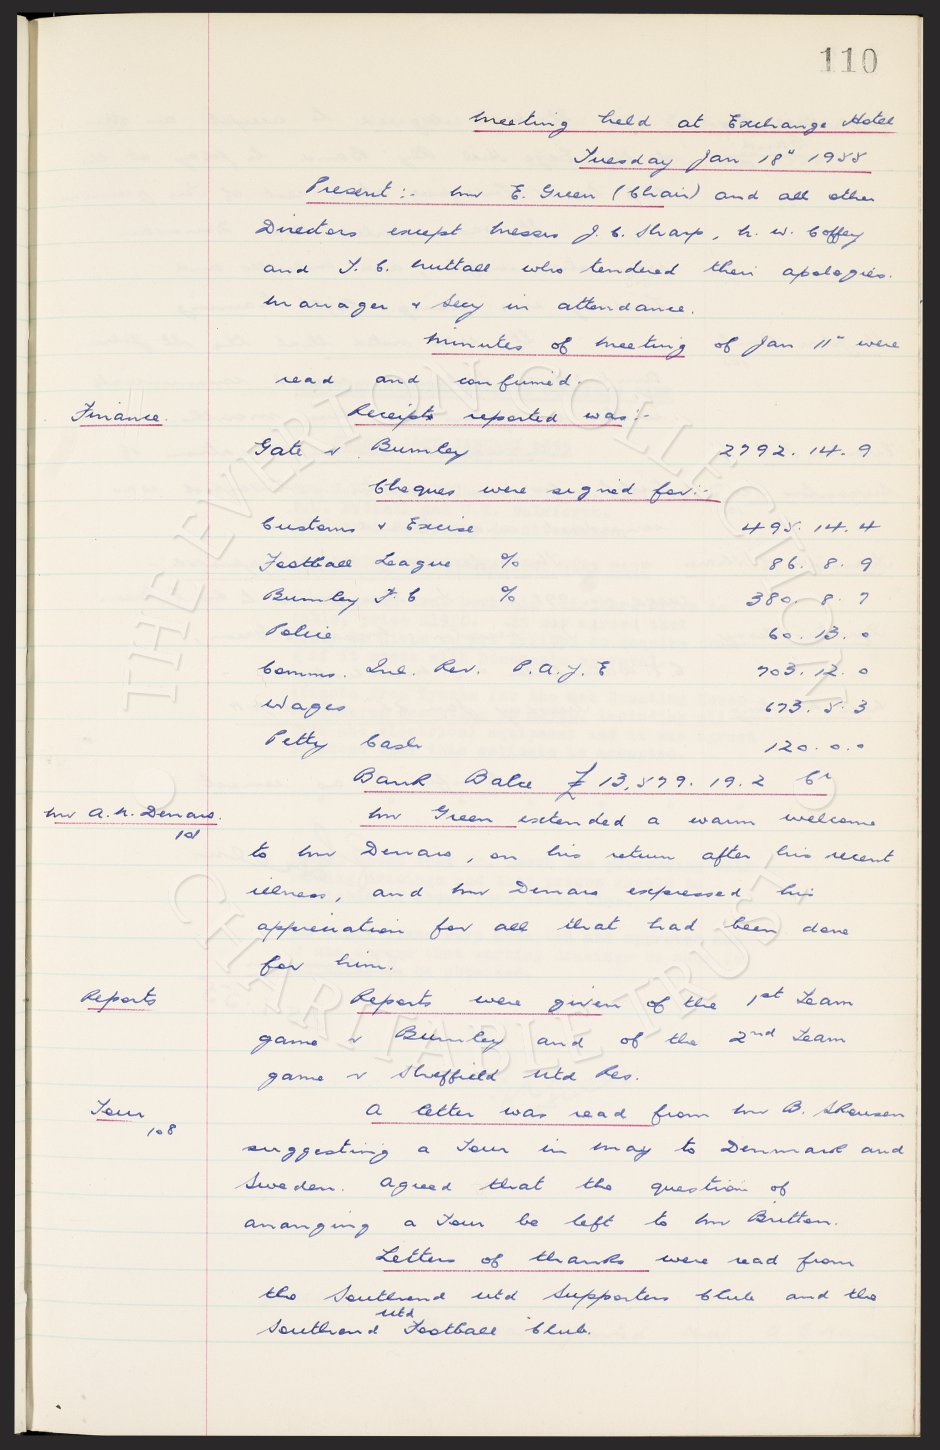 110
Meeting held at Exchange Hotel
Tuesday Jan 18" 1955
Present :- Mr E. Green (Chair) and all other
Directors except Messrs J. C. Sharp, N. W. Coffey
and T. C. Nuttall who tendered their apologies.
Manager & Secy in attendance.
Minutes of Meeting of Jan 11" were
read and confirmed.
Finance. Receipts reported was :-
Gate v Burnley 2792. 14. 9
Cheques were signed for :-
Customs & Excise 495. 14. 4
Football League % 86. 8. 9
Burnley F. C % 380. 8. 7
Police 60. 13. 0
Comms. Inl. Rev. P. A. Y. E 703. 12. 0
Wages 673. 5. 3
Petty Cash 120. 0. 0
Bank Balce £ 13,579. 19. 2 Cr
Mr A. H. Denaro. Mr Green extended a warm welcome
to Mr Denaro, on his return after his recent
illness, and Mr Denaro expressed his
appreciation for all that had been done
for him.
Reports Reports were given of the 1st Team
game v Burnley and of the 2nd Team
game v Sheffield Utd Res.
Tour 108 A letter was read from Mr B.
suggesting a Tour in May to Denmark and
Sweden. Agreed that the question of
arranging a Tour be left to Mr Britton.
Letters of thanks were read from
the Southend Utd Supporters Club and the
Southend Utd Football Club.
THE EVERTON COLLECTION
CHARITABLE TRUST